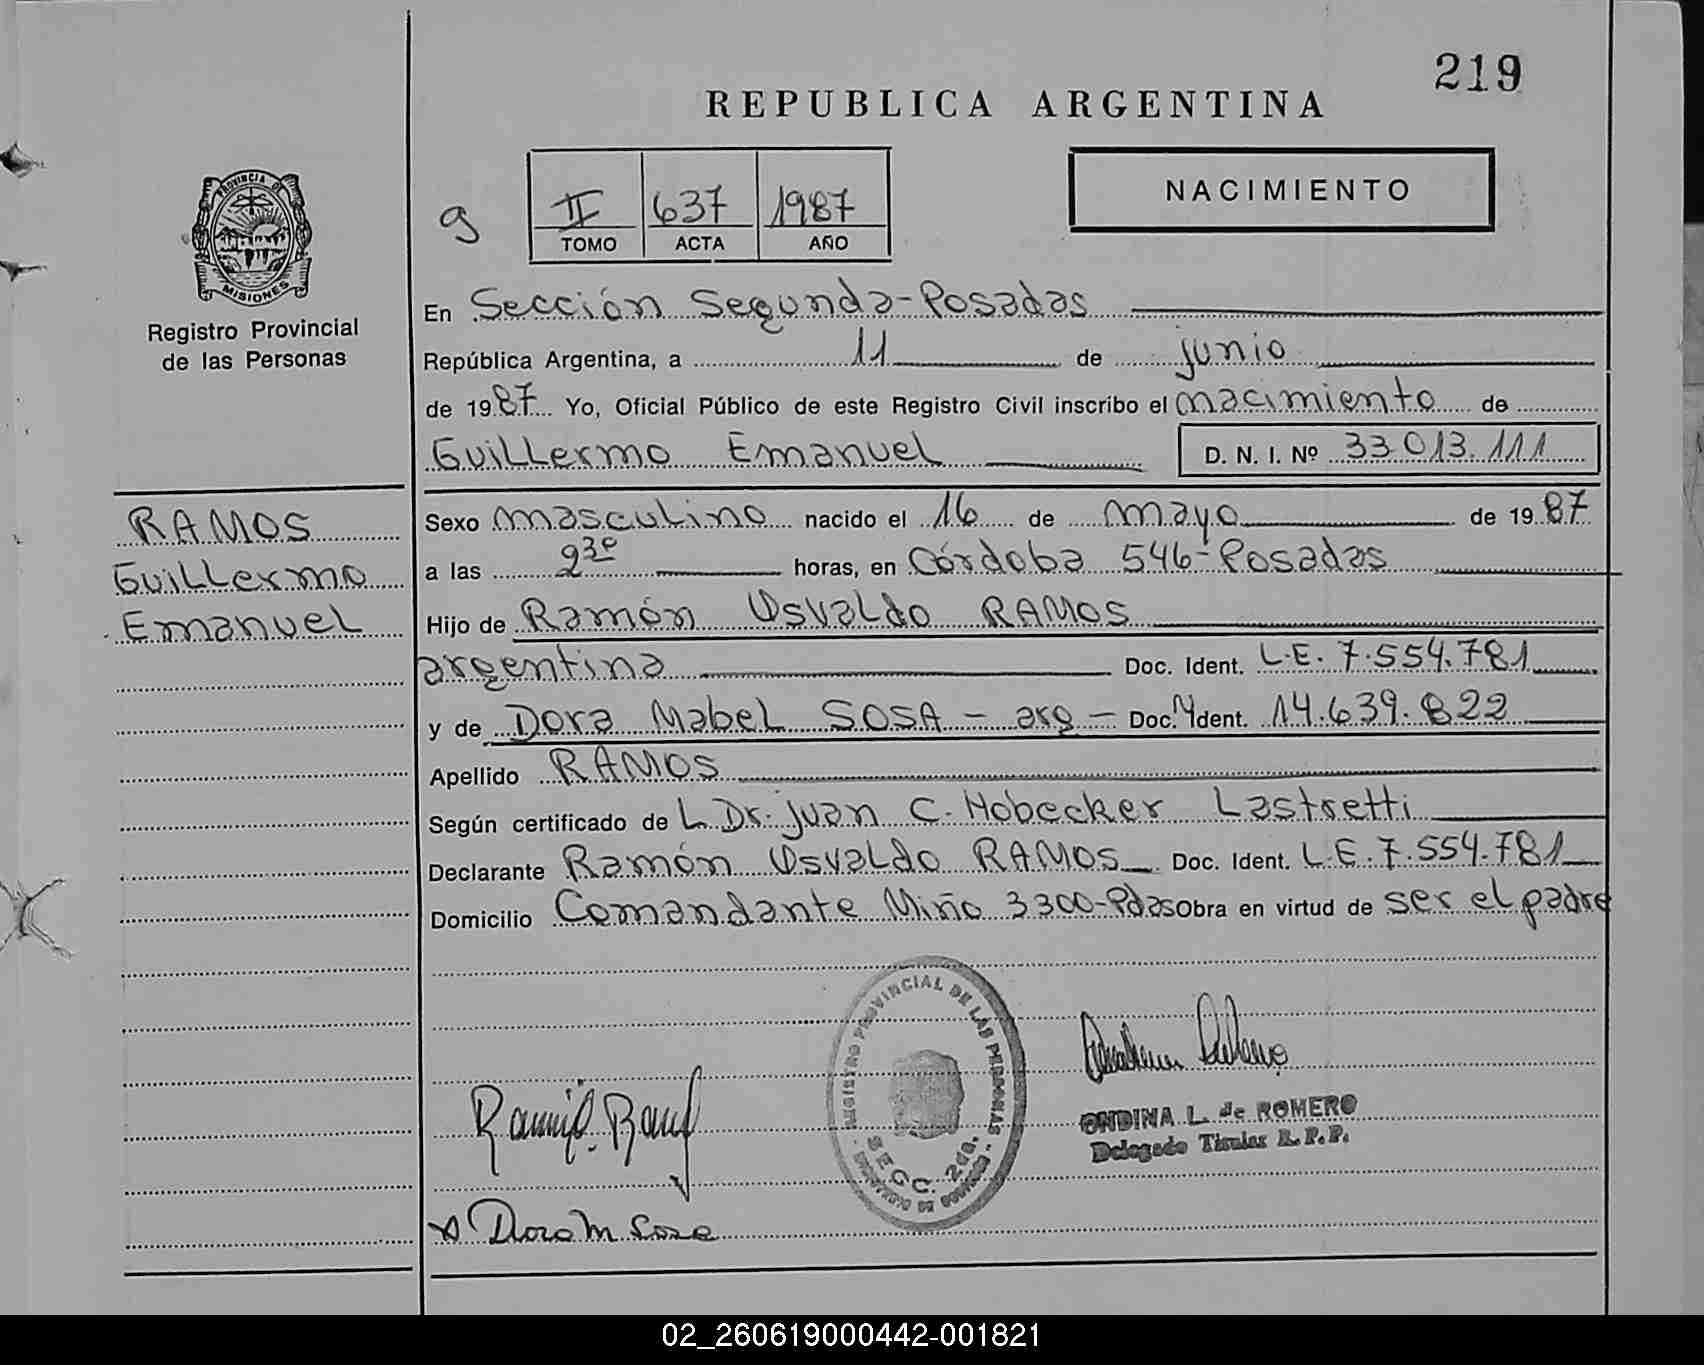 219
REPUBLICA ARGENTINA
PROVINCIA DE
MISIONES
Registro Provincial
de las Personas
g
II 637 1987
TOMO ACTA AÑO
NACIMIENTO
En Sección Segunda-Posadas
República Argentina, a 11 de junio
de 1987 Yo, Oficial Público de este Registro Civil inscribo el nacimiento de
Guillermo Emanuel D. N. I. Nº 33.013.111
RAMOS
Guillermo
Emanuel
Sexo masculino nacido el 16 de mayo de 1987
a las horas, en Córdoba 546-Posadas
Hijo de Ramón Osvaldo RAMOS
argentino Doc. Ident. L.E. 7.554.781
y de Dora Mabel SOSA - arg - Doc. Ident. 14.639.822
Apellido RAMOS
Según certificado de L. Dr. Juan C. Hobecker Lastretti
Declarante Ramón Osvaldo RAMOS Doc. Ident. L.E. 7.554.781
Domicilio Comandante Miño 3300-Pdas Obra en virtud de ser el padre
REGISTRO PROVINCIAL DE LAS PERSONAS
SECC. 2da.
ONDINA L. de ROMERO
Delegado Titular R. P. P.
Dora M Sosa
02_260619000442-001821